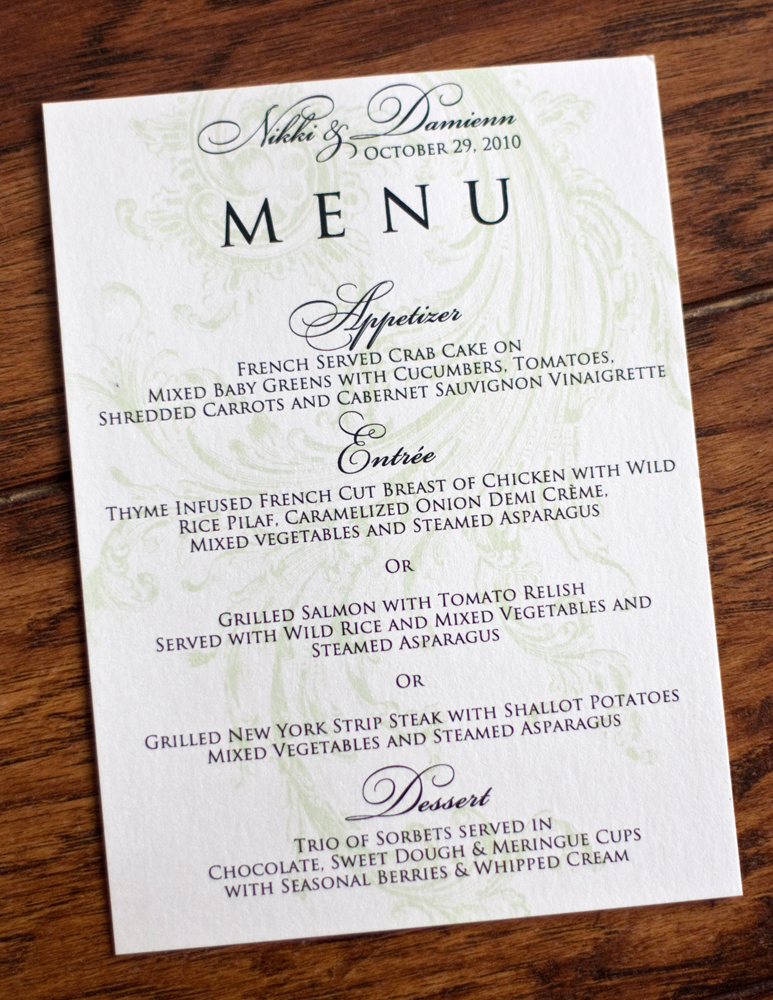 Nikki & Damienn
October 29, 2010
MENU
Appetizer
French Served Crab Cake on
Mixed Baby Greens with Cucumbers, Tomatoes,
Shredded Carrots and Cabernet Sauvignon Vinaigrette
Entrée
Thyme Infused French Cut Breast of Chicken with Wild
Rice Pilaf, Caramelized Onion Demi Crème,
Mixed vegetables and Steamed Asparagus
Or
Grilled Salmon with Tomato Relish
Served with Wild Rice and Mixed Vegetables and
Steamed Asparagus
Or
Grilled New York Strip Steak with Shallot Potatoes
Mixed Vegetables and Steamed Asparagus
Dessert
Trio of Sorbets served in
Chocolate, Sweet Dough & Meringue Cups
with Seasonal Berries & Whipped Cream